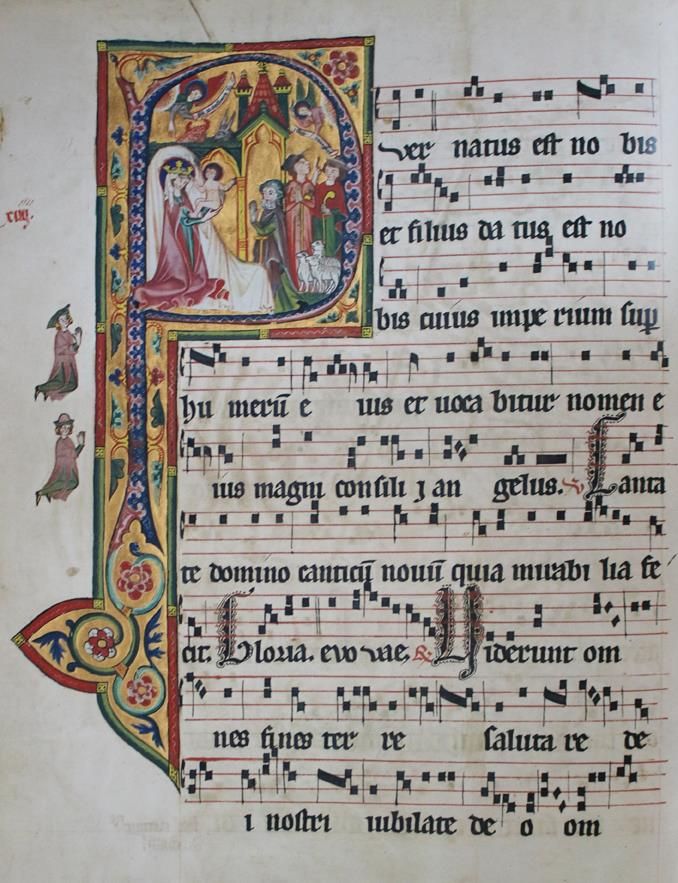 P
uer natus est no bis
et filius da tus est no
bis cuius impe rium sup
hu merū e ius et uoca bitur nomen e
ius magni consili j an gelus. Canta
te domino canticū nouū quia mirabi lia fe
cit. Gloria. evovae. Viderunt om
nes fines ter re saluta re de
i nostri iubilate de o om